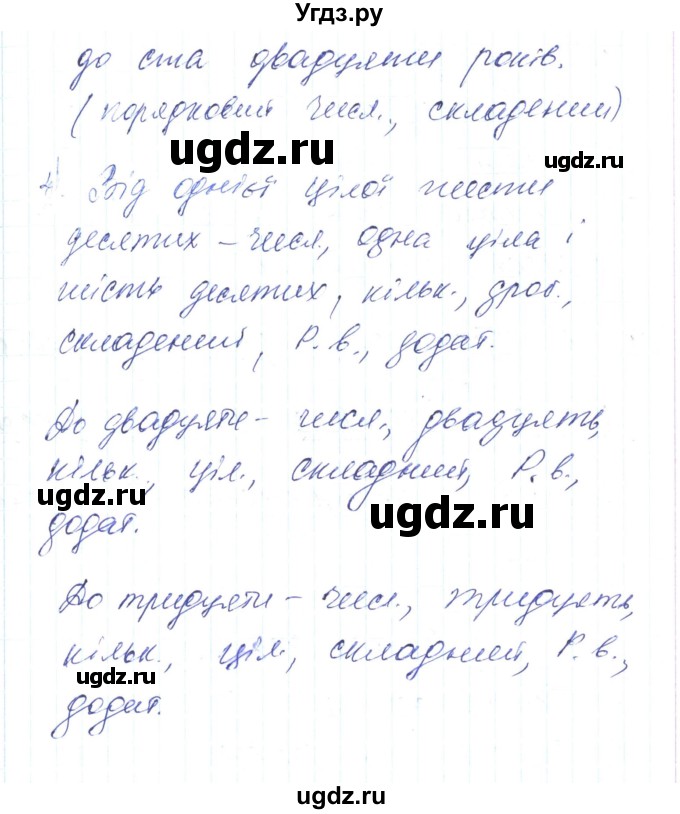 Угдз.ру
до ста двадцяти років.
(порядковий числ., складений)
ugdz.ru
ugdz.ru
4. Від однієї цілої шести
десятих – числ., одна ціла і
шість десятих, кільк., дроб.,
складений, Р.в., додат.
ugdz.ru
До двадцяти – числ., двадцять,
кільк., ціл., складний, Р.в.,
ugdz.ru
ugdz.ru
додат.
До тридцяти – числ., тридцять,
кільк., ціл., складний, Р.в.,
ugdz.ru
додат.
ugdz.ru